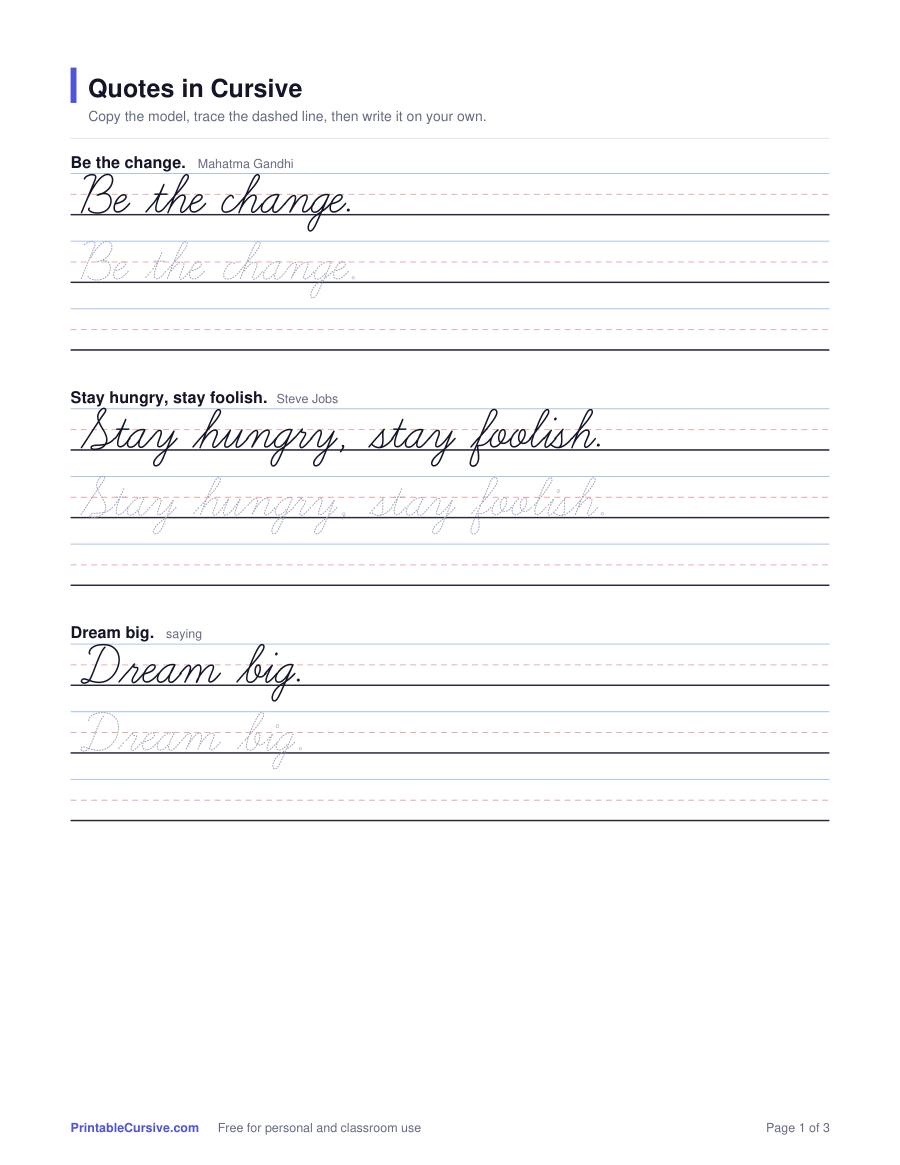 Quotes in Cursive
Copy the model, trace the dashed line, then write it on your own.
Be the change. Mahatma Gandhi
Be the change.
Be the change.
Stay hungry, stay foolish. Steve Jobs
Stay hungry, stay foolish.
Stay hungry, stay foolish.
Dream big. saying
Dream big.
Dream big.
PrintableCursive.com Free for personal and classroom use Page 1 of 3